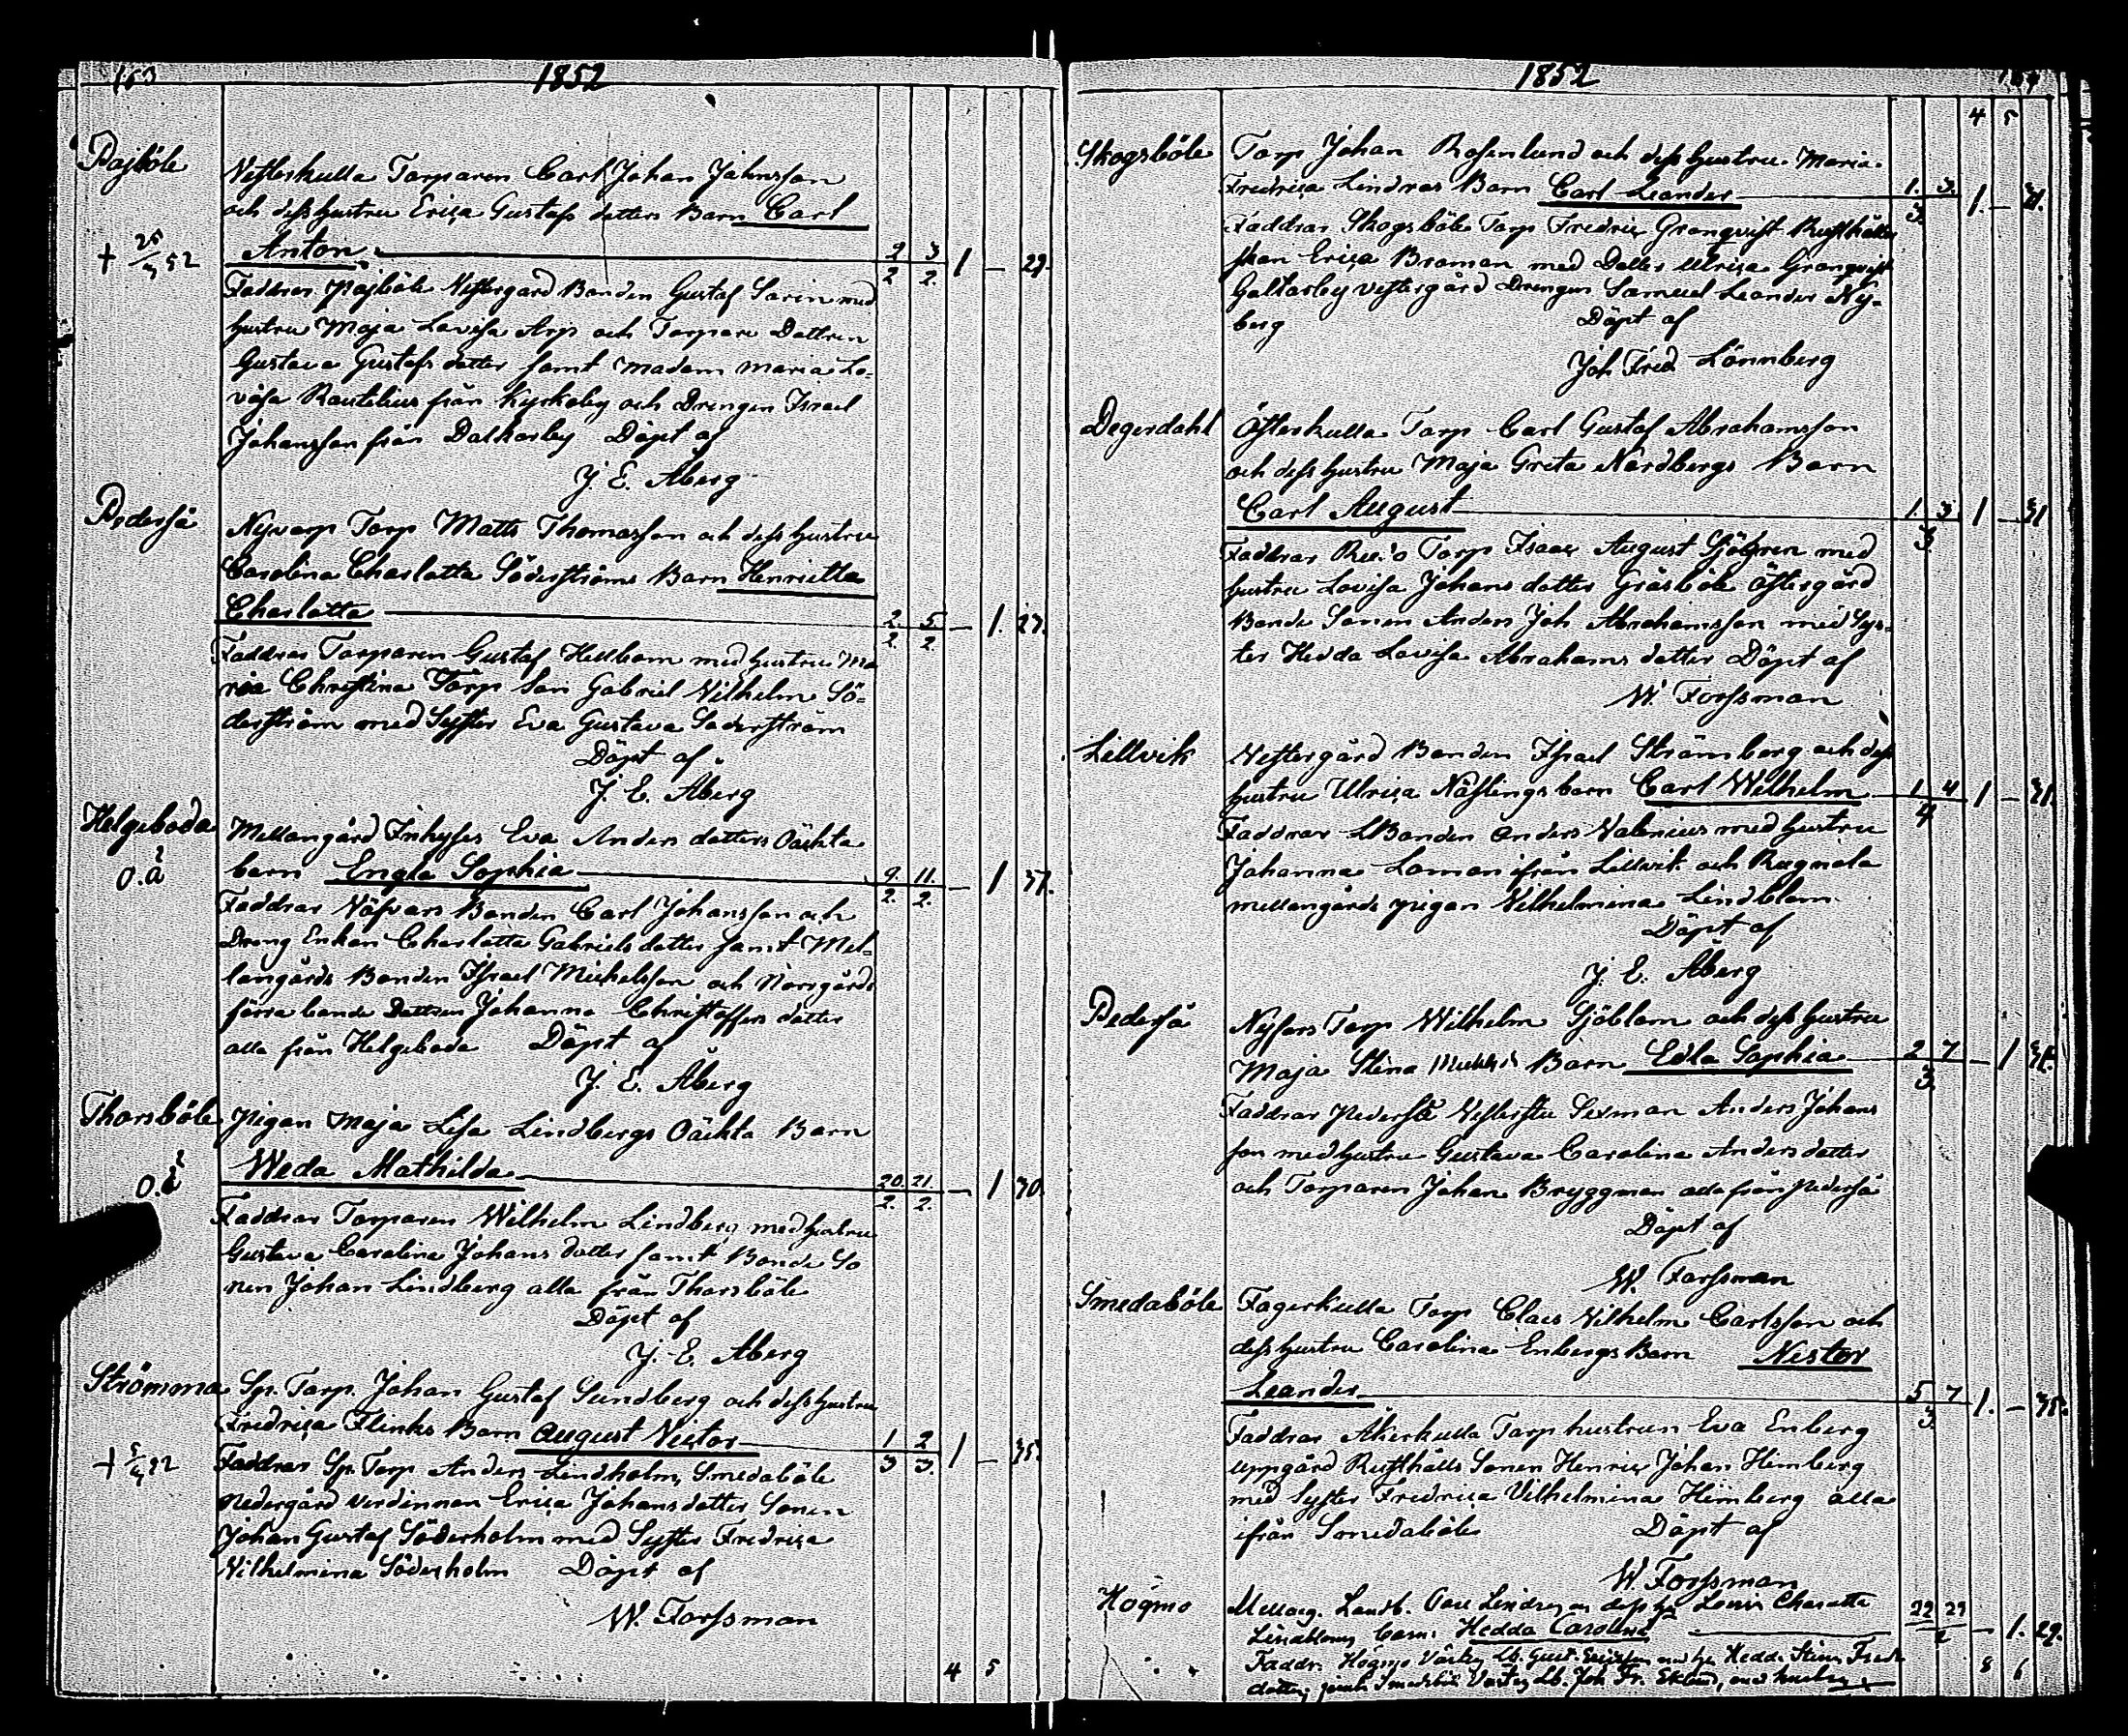 153
1852
Pajböle
Vesterkulla Torparen Carl Johan Johnsson
och dess hustru Erica Gustafs dotters Barn Carl
+ 25/3 52
Anton 2/2 3/2. 1 — 29.
Faddrar Pajböle Westergård Bonden Gustaf Sarin med
hustru Maja Lovisa Arp och Torpare Dottren
Gustava Gustafs dotter samt Madam Maria Lo-
visa Rautelius från Kyrkoby och Drengen Israel
Johansson från Dalkarby Döpt af
J. E. Åberg
Pederså
Nytorp Torp Matts Thomasson och dess hustru
Carolina Charlotta Söderströms Barn Henrietta
Charlotta 2./2. 5/2 — 1. 27.
Faddrar Torparen Gustaf Hellbom med hustru Ma
ria Christina Torp Son Gabriel Wilhelm Sö-
derström med Syster Eva Gustava Söderström
Döpt af
J. E. Åberg
Helgeboda
Mellangård Inhyses Eva Anders dotters Oäckta
o.ä
barn Engla Sophia 9./2. 11./2. — 1 37.
Faddrar Näsvars Bonden Carl Johansson och
Dreng Enkan Charlotta Gabriels dotter samt Mel-
langårds Bonden Israel Michelsson och Norrgårds
förra bonde Dottren Johanna Christoffers dotter
alla från Helgeboda Döpt af
J. E. Åberg
Thorsböle
Pigan Maja Lisa Lindbergs Oäckta Barn
o.ä
Weda Mathilda 20./2. 21./2. — 1 30.
Faddrar Torparen Wilhelm Lindberg med hustru
Gustava Carolina Johans dotter samt Bonde So
nen Johan Lindberg alla från Thorsböle
Döpt af
J. E. Åberg
Strömma
Sp. Torp. Johan Gustaf Sundberg och dess hustru
Fredrica Flinks Barn August Victor 1/3 2/3. 1 — 35.
+ 5/4 52
Faddrar Sp. Torp Anders Lindholm, Smedaböle
Nedergård värdinnan Erica Johans dotter Sonen
Johan Gustaf Söderholm med Syster Fredrica
Wilhelmina Söderholm Döpt af
W. Forssman
4 5
1852
4 5
Skogsböle
Torp Johan Rosenlund och dess hustru Maria
Fredrica Lindros Barn Carl Leander 1. 3./3. 1. — 31.
Faddrar Skogsböle Torp Fredric Granqvist Rusthålls
skan Erica Broman med Dotter Ulrica Granqvist
Galtarby Vestergård Drengen Samuel Leander Ny-
berg Döpt af
Joh Fred Lönnberg
Degerdahl
Österkulla Torp Carl Gustaf Abrahamsson
och dess hustru Maja Greta Nordbergs Barn
Carl August 1. 3./3 1 — 31
Faddrar Torp Isaac August Sjögren med
hustru Lovisa Johans dotter Gräsböle Östergård
Bonde Sonen Anders Joh Abrahamsson med Sys-
ter Hedda Lovisa Abrahams dotter Döpt af
W. Forssman
Lillvik
Westergård Bonden Israel Strömberg och dess
hustru Ulrica Näslings barn Carl Wilhelm 1. 4/4 1 — 31.
Faddrar LBonden Anders Valenius med hustru
Johanna Loman ifrån Lillvik och Rugnola
mellangårds pigan Wilhelmina Lindblom
Döpt af
J. E. Åberg
Pederså
Nyfors Torp Wilhelm Sjöblom och dess hustru
Maja Stina Barn Edla Sophia 2 7/3. — 1
Faddrar Pederså Sexman Anders Johans
son med hustru Gustava Carolina Anders dotter
och Torparen Johan Bryggman alla från Pederså
Döpt af
W. Forssman
Smedaböle
Fagerkulla Torp Claes Wilhelm Carlsson och
dess hustru Carolina Enbergs Barn Nestor
Leander 5 7/3. 1. — 35.
Faddrar Åkerkulla Torp hustrun Eva Enberg
uppgård Rusthålls Sonen Henric Johan Himberg
med Syster Fredrica Wilhelmina Himberg alla
ifrån Smedaböle Döpt af
W. Forssman
Högmo
Mellang. Landb. Carl dess h:u Lovisa Charlotta
Lindbloms barn: Hedda Carolina 22 29/2 — 1. 29.
Faddr. Högmo Lb. Gust. Ericsson med h:u Hedda Stina Fredr
dotter, samt Smedaböle Lb. Joh Fr. Eklund, med
8 6